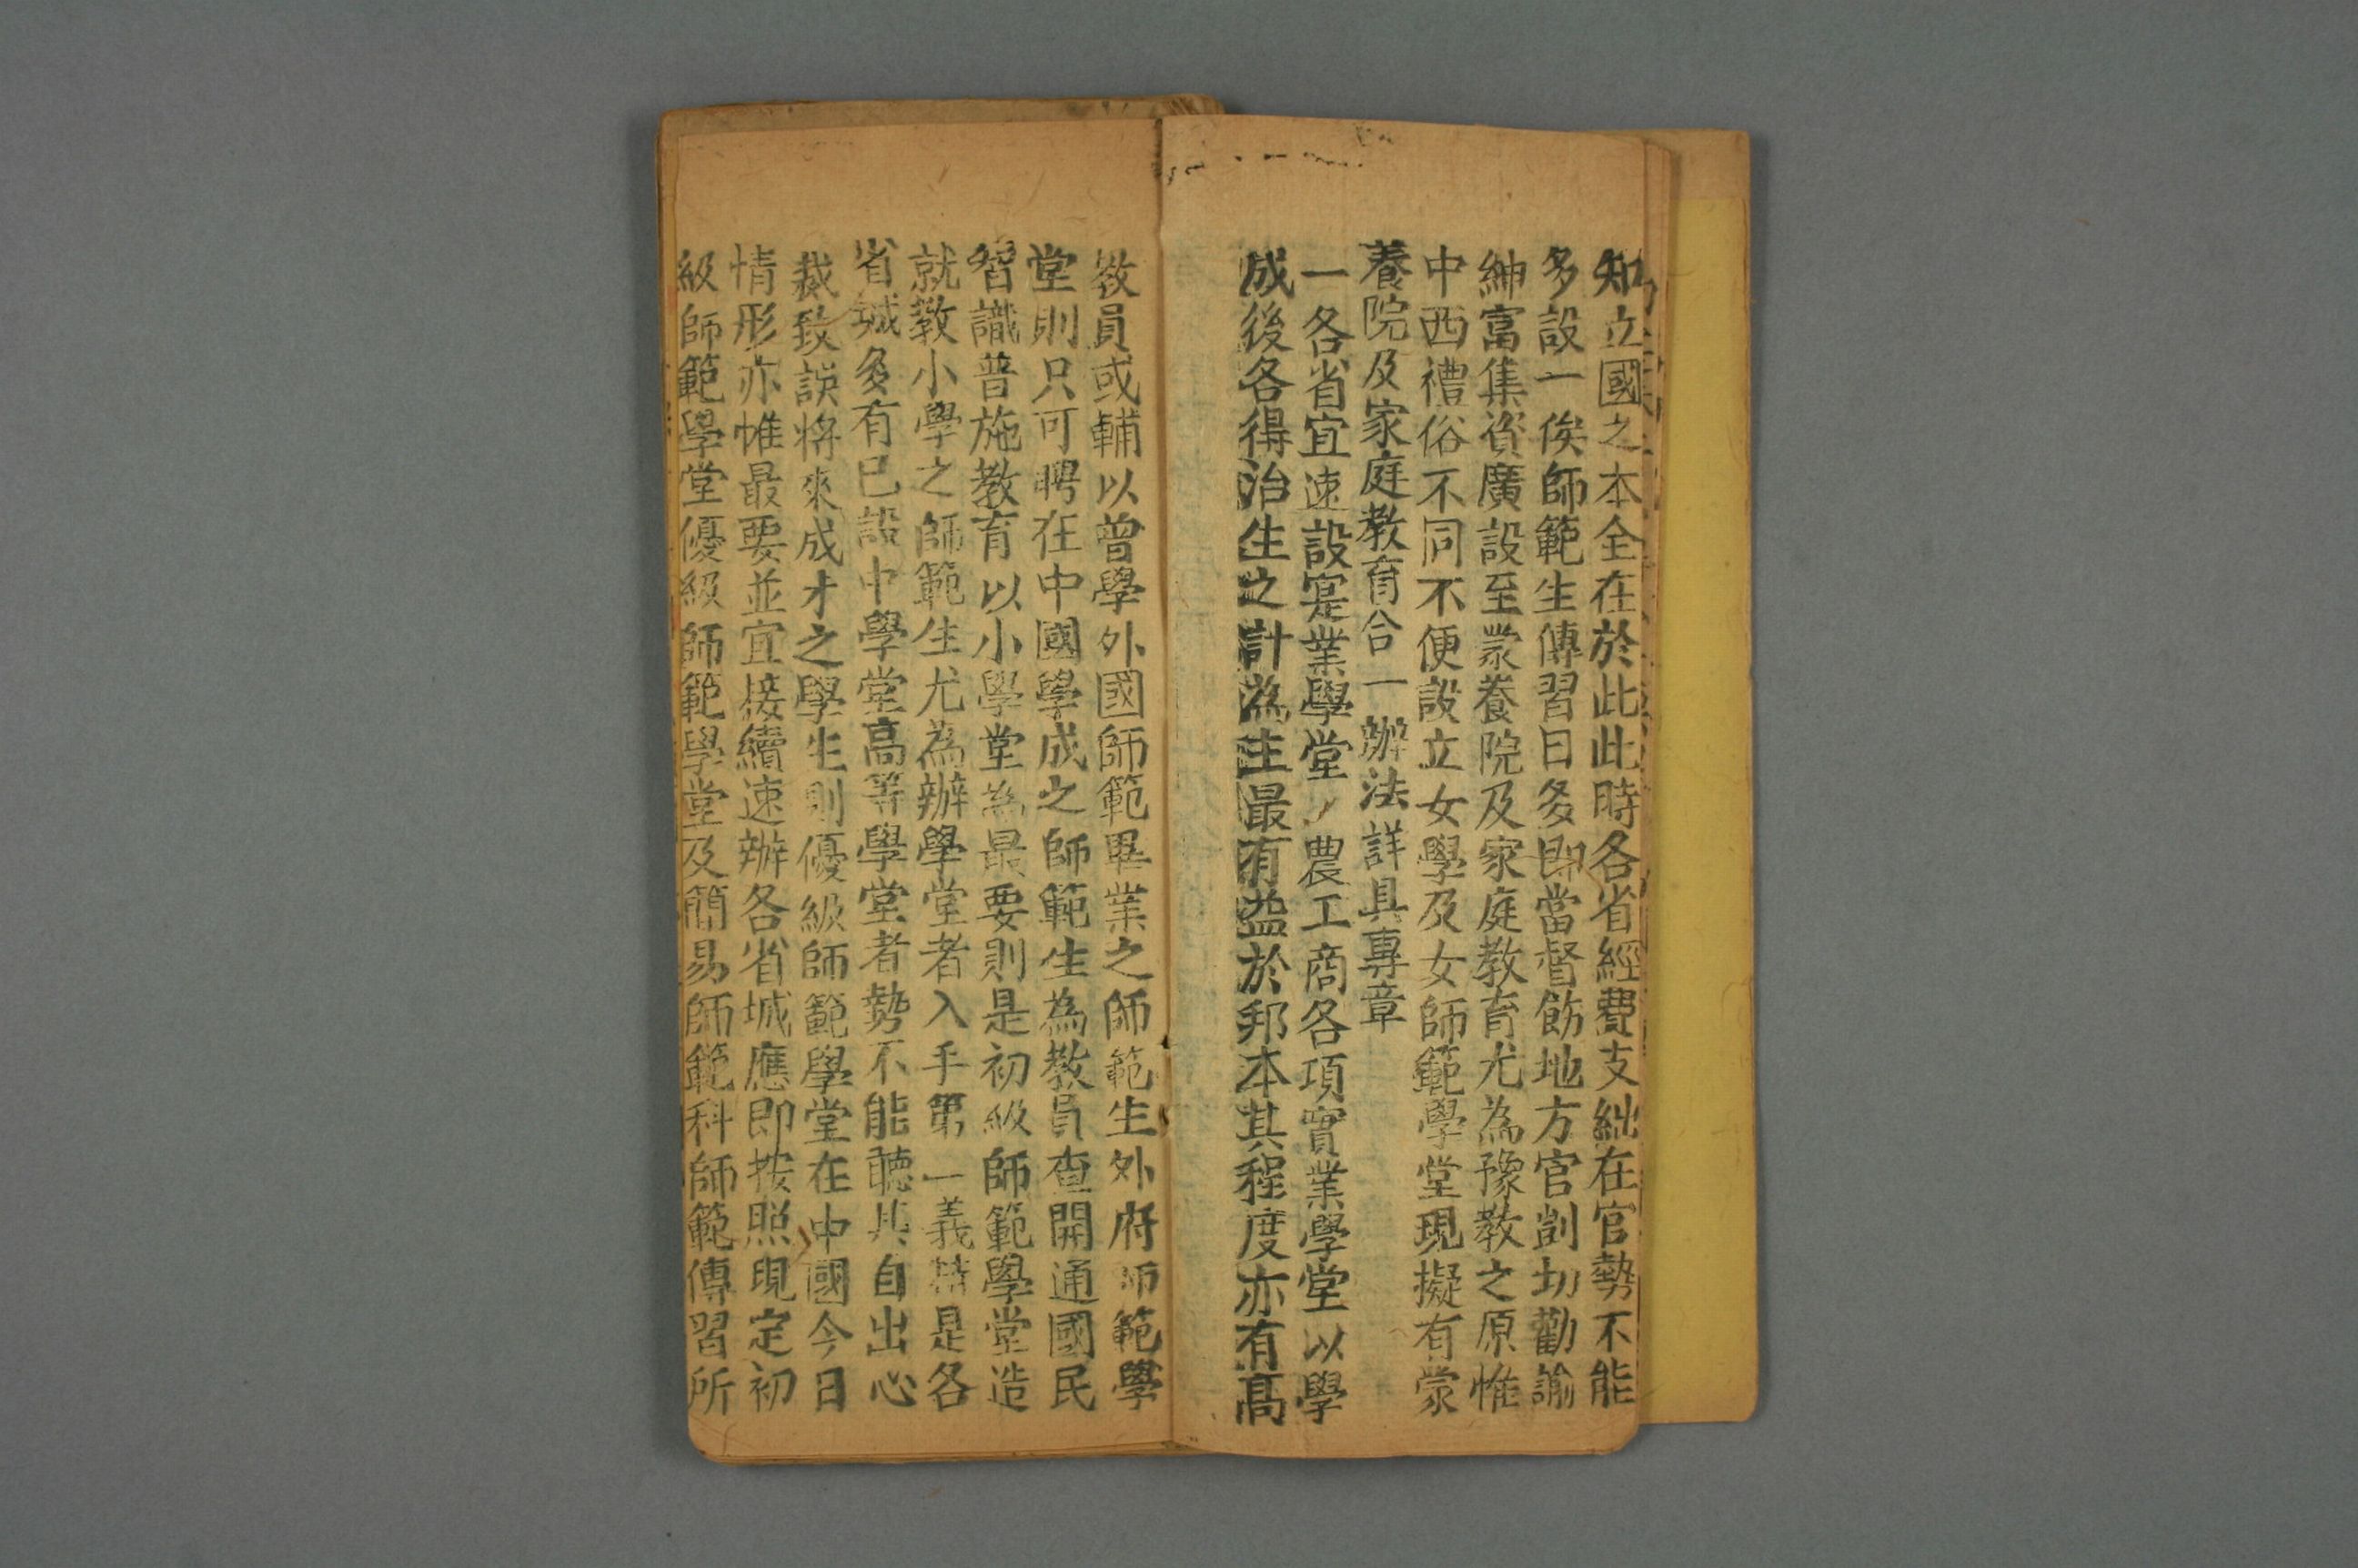 知立國之本全在於此此時各省經費支絀在官勢不能
多設一俟師範生傳習日多即當督飭地方官剴切勸諭
紳富集資廣設至蒙養院及家庭教育尤為豫教之原惟
中西禮俗不同不便設立女學及女師範學堂現擬有蒙
養院及家庭教育合一辦法詳具專章
一各省宜速設寔業學堂農工商各項實業學堂以學
成後各得治生之計為主最有益於邦本其程度亦有高
教員或輔以曾學外國師範畢業之師範生外府師範學
堂則只可聘在中國學成之師範生為教員查開通國民
智識普施教育以小學堂為最要則是初級師範學堂造
就教小學之師範生尤為辦學堂者入手第一義特是各
省城多有已設中學堂高等學堂者勢不能聽其自出心
裁致誤將來成才之學生則優級師範學堂在中國今日
情形亦惟最要並宜接續速辦各省城應即按照現定初
級師範學堂優級師範學堂及簡易師範科師範傳習所